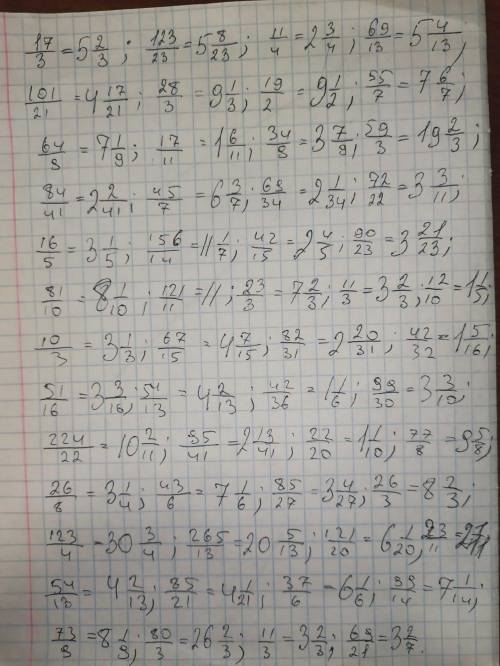 17/3 = 5 2/3; 123/23 = 5 8/23; 11/4 = 2 3/4; 69/13 = 5 4/13;
101/21 = 4 17/21; 28/3 = 9 1/3; 19/2 = 9 1/2; 55/7 = 7 6/7;
64/9 = 7 1/9; 17/11 = 1 6/11; 34/9 = 3 7/9; 59/3 = 19 2/3;
84/41 = 2 2/41; 45/7 = 6 3/7; 69/34 = 2 1/34; 72/22 = 3 3/11;
16/5 = 3 1/5; 156/14 = 11 1/7; 42/15 = 2 4/5; 90/23 = 3 21/23;
81/10 = 8 1/10; 121/11 = 11; 23/3 = 7 2/3; 11/3 = 3 2/3; 12/10 = 1 1/5;
10/3 = 3 1/3; 67/15 = 4 7/15; 82/31 = 2 20/31; 42/32 = 1 5/16;
51/16 = 3 3/16; 54/13 = 4 2/13; 42/36 = 1 1/6; 99/30 = 3 3/10;
224/22 = 10 2/11; 95/41 = 2 13/41; 22/20 = 1 1/10; 77/8 = 9 5/8;
26/8 = 3 1/4; 43/6 = 7 1/6; 85/27 = 3 4/27; 26/3 = 8 2/3;
123/4 = 30 3/4; 265/13 = 20 5/13; 121/20 = 6 1/20; 23/11 =
54/13 = 4 2/13; 85/21 = 4 1/21; 37/6 = 6 1/6; 99/14 = 7 1/14;
73/9 = 8 1/9; 80/3 = 26 2/3; 11/3 = 3 2/3; 69/21 = 3 2/7.